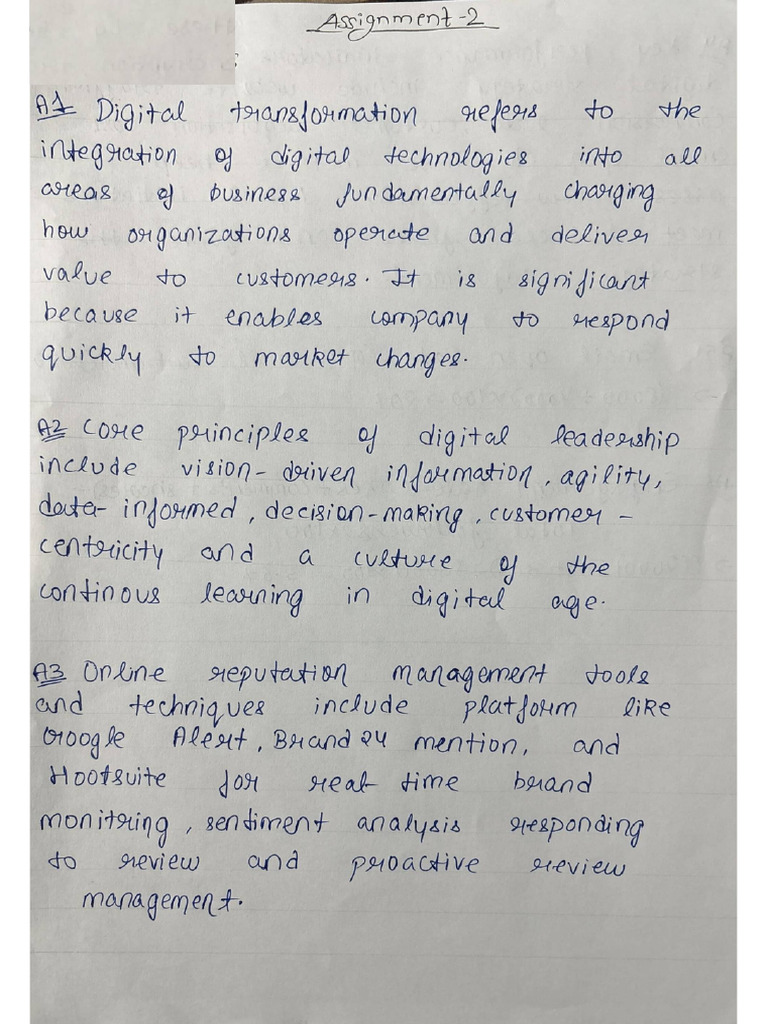 Assignment-2
A1 Digital transformation refers to the
integration of digital technologies into all
areas of business fundamentally charging
how organizations operate and deliver
value to customers. It is significant
because it enables company to respond
quickly to market changes.
A2 Core principles of digital leadership
include vision-driven information, agility,
data-informed, decision-making, customer-
centricity and a culture of the
continous learning in digital age.
A3 Online reputation management tools
and techniques include platform like
Google Alert, Brand 24 mention, and
Hootsuite for real time brand
monitring, sentiment analysis responding
to review and proactive review
management.